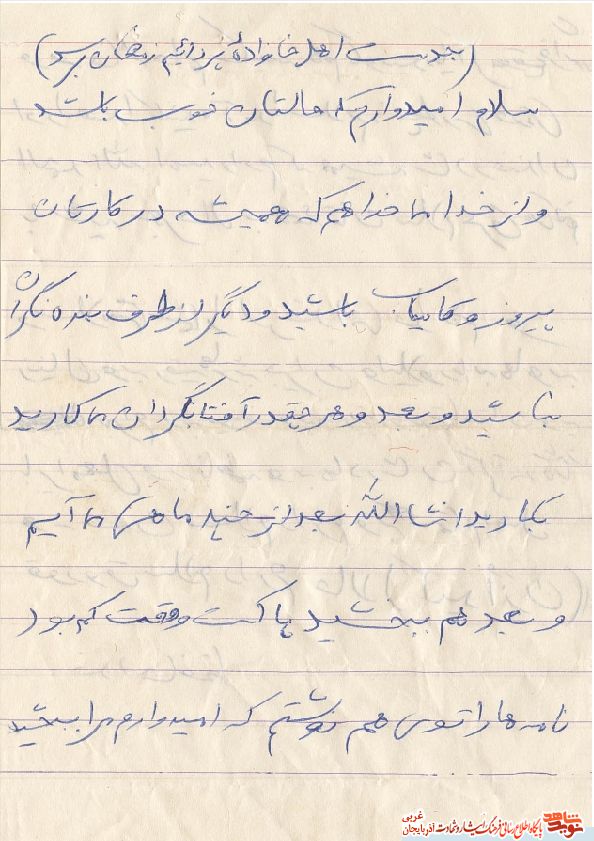 (بدست اهل خانواده برسد)
سلام امیدوارم که حالتان خوب باشد
و از خدا ما خواهم که همیشه در کارتان
پیروز و باشید و دیگر از طرف بنده نگران
نباشید و بعد و هر چقدر آفتابگردان ما کارید
بکارید انشاالله بعد از چند ماه من ما آیم
و بعد هم ببخشید پاکت وقت کم بود
نامه ها را توی هم نوشتم که امیدوارم مرا ببخشید
نوید شاهد
پایگاه اطلاع رسانی فرهنگ ایثار و شهادت آذربایجان غربی